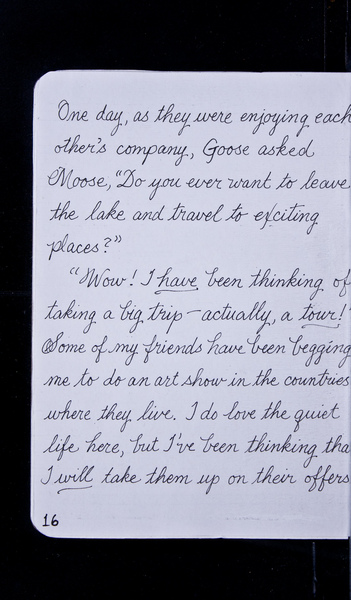 One day, as they were enjoying each
other's company, Goose asked
Moose, "Do you ever want to leave
the lake and travel to exciting
places?"
"Wow! I have been thinking of
taking a big trip – actually, a tour!"
Some of my friends have been begging
me to do an art show in the countries
where they live. I do love the quiet
life here, but I've been thinking tha
I will take them up on their offers
16